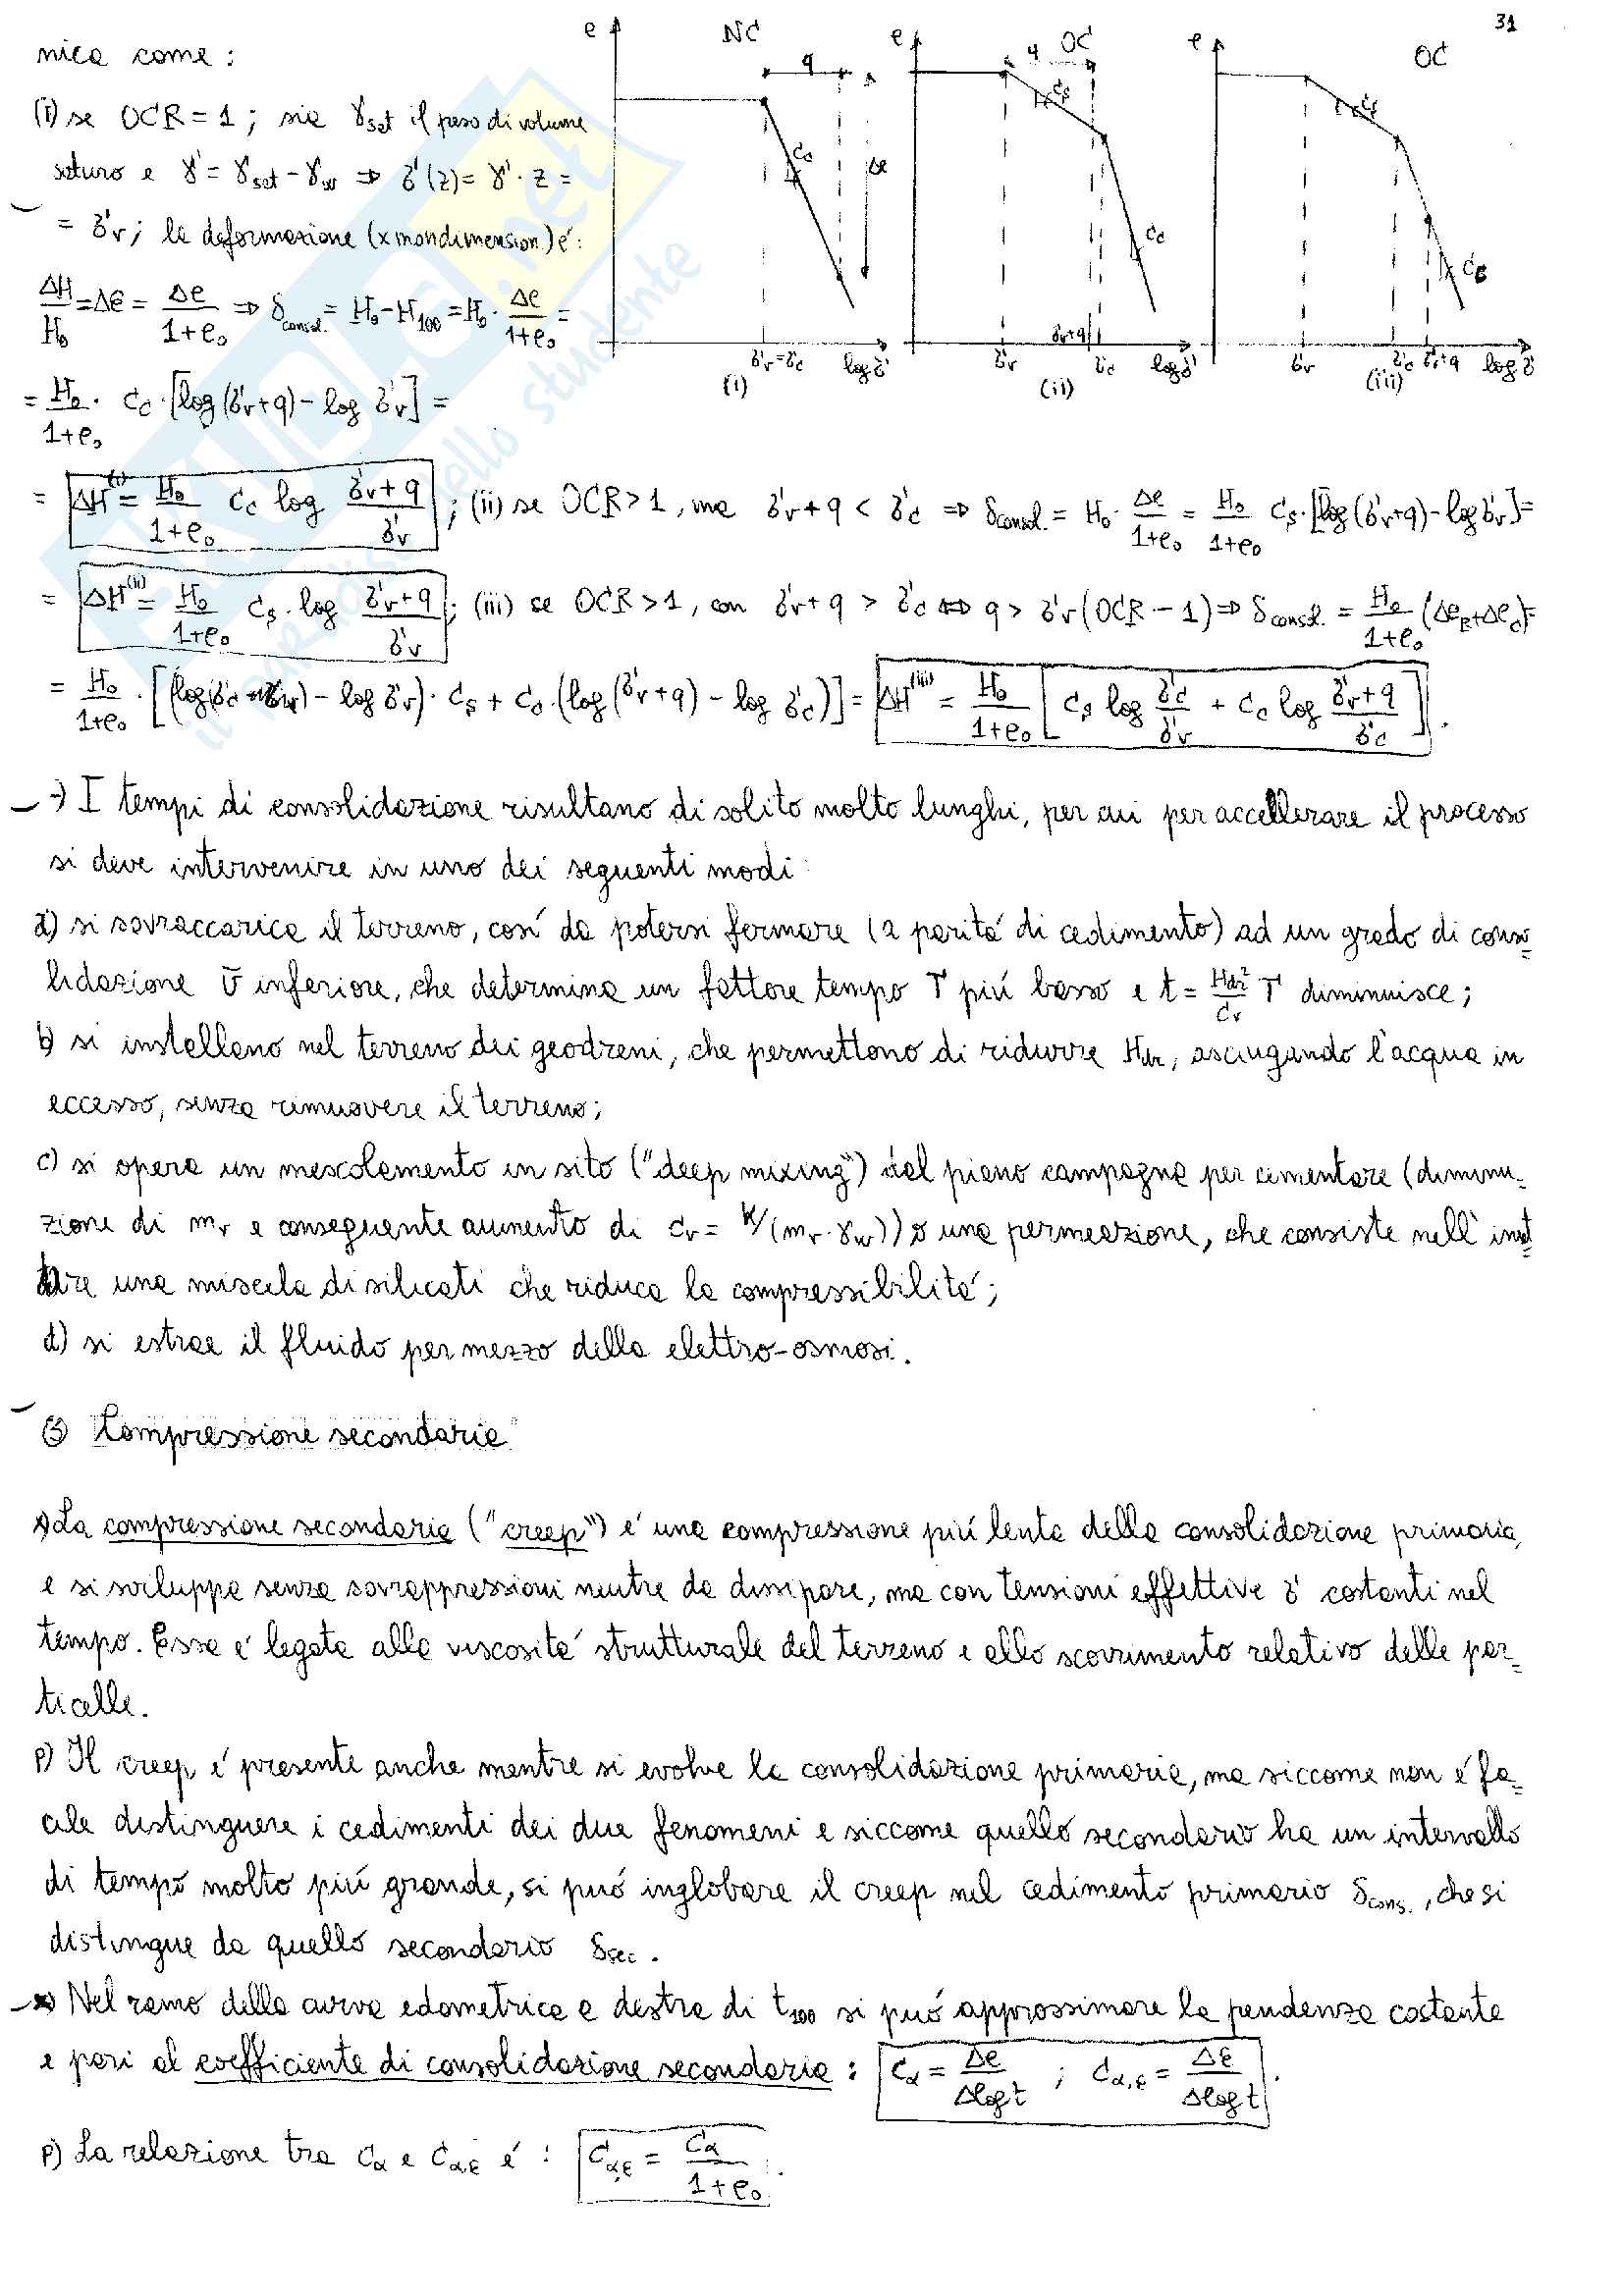 31
nica come :
(i) se OCR = 1 ; sia γsat il peso di volume
saturo e γ' = γsat - γw ⇒ σ'(z) = γ' · z =
= σ'v ; la deformazione (x monodimension.) é :
ΔH/H0 = Δε = Δe/(1+e0) ⇒ δconsol. = H0 - H100 = H0 · Δe/(1+e0) =
= H0/(1+e0) · Cc · [log(σ'v+q) - log σ'v] =
e NC q Cc Δe σ'v=σ'c log σ' (i)
e q OC Cs Cc σ'v σ'v+q σ'c log σ' (ii)
e OC Cs Cc σ'v σ'c σ'v+q log σ' (iii)
= ΔH(i) = H0/(1+e0) Cc log (σ'v+q)/σ'v ; (ii) se OCR > 1, ma σ'v + q < σ'c ⇒ δconsol. = H0 · Δe/(1+e0) = H0/(1+e0) Cs · [log(σ'v+q) - log σ'v] =
= ΔH(ii) = H0/(1+e0) Cs · log (σ'v+q)/σ'v ; (iii) se OCR > 1, con σ'v + q > σ'c ⇔ q > σ'v (OCR - 1) ⇒ δconsol. = H0/(1+e0) (ΔeR+ΔeC) =
= H0/(1+e0) · [(log σ'c - log σ'v) · Cs + Cc · (log(σ'v+q) - log σ'c)] = ΔH(iii) = H0/(1+e0) [Cs log σ'c/σ'v + Cc log (σ'v+q)/σ'c] .
→) I tempi di consolidazione risultano di solito molto lunghi, per cui per accellerare il processo
si deve intervenire in uno dei seguenti modi :
a) si sovraccarica il terreno, cosí da potersi fermare (a paritá di cedimento) ad un grado di conso=
lidazione Ū inferiore, che determina un fattore tempo T piú basso e t = Hdr²/Cv T diminuisce ;
b) si installano nel terreno dei geodreni, che permettono di ridurre Hdr, asciugando l'acqua in
eccesso, senza rimuovere il terreno ;
c) si opera un mescolamento in sito ("deep mixing") dal piano campagna per cementare (diminu-
zione di mv e conseguente aumento di Cv = K/(mv · γw)) o una permeazione, che consiste nell' iniet
tare una miscela di silicati che riduca la compressibilitá ;
d) si estrae il fluido per mezzo della elettro-osmosi.
Compressione secondaria
La compressione secondaria ("creep") é una compressione piú lenta della consolidazione primaria,
e si sviluppa senza sovrappressioni neutre da dissipare, ma con tensioni effettive σ' costanti nel
tempo. Essa é legata alla viscositá strutturale del terreno e allo scorrimento relativo delle par=
ticelle.
β) Il creep é presente anche mentre si evolve la consolidazione primaria, ma siccome non é fa=
cile distinguere i cedimenti dei due fenomeni e siccome quello secondario ha un intervallo
di tempo molto piú grande, si puó inglobare il creep nel cedimento primario δcons. , che si
distingue da quello secondario δsec .
Nel ramo della curva edometrica a destra di t100 si puó approssimare la pendenza costante
e pari al coefficiente di consolidazione secondaria : Cα = Δe/Δlog t ; Cα,ε = Δε/Δlog t .
β) La relazione tra Cα e Cα,ε é : Cα,ε = Cα/(1+e0) .